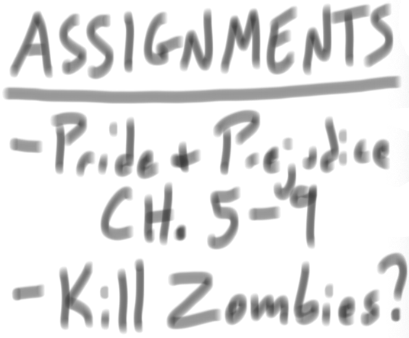 ASSIGNMENTS
- Pride + Prejudice
CH. 5-9
- Kill Zombies?